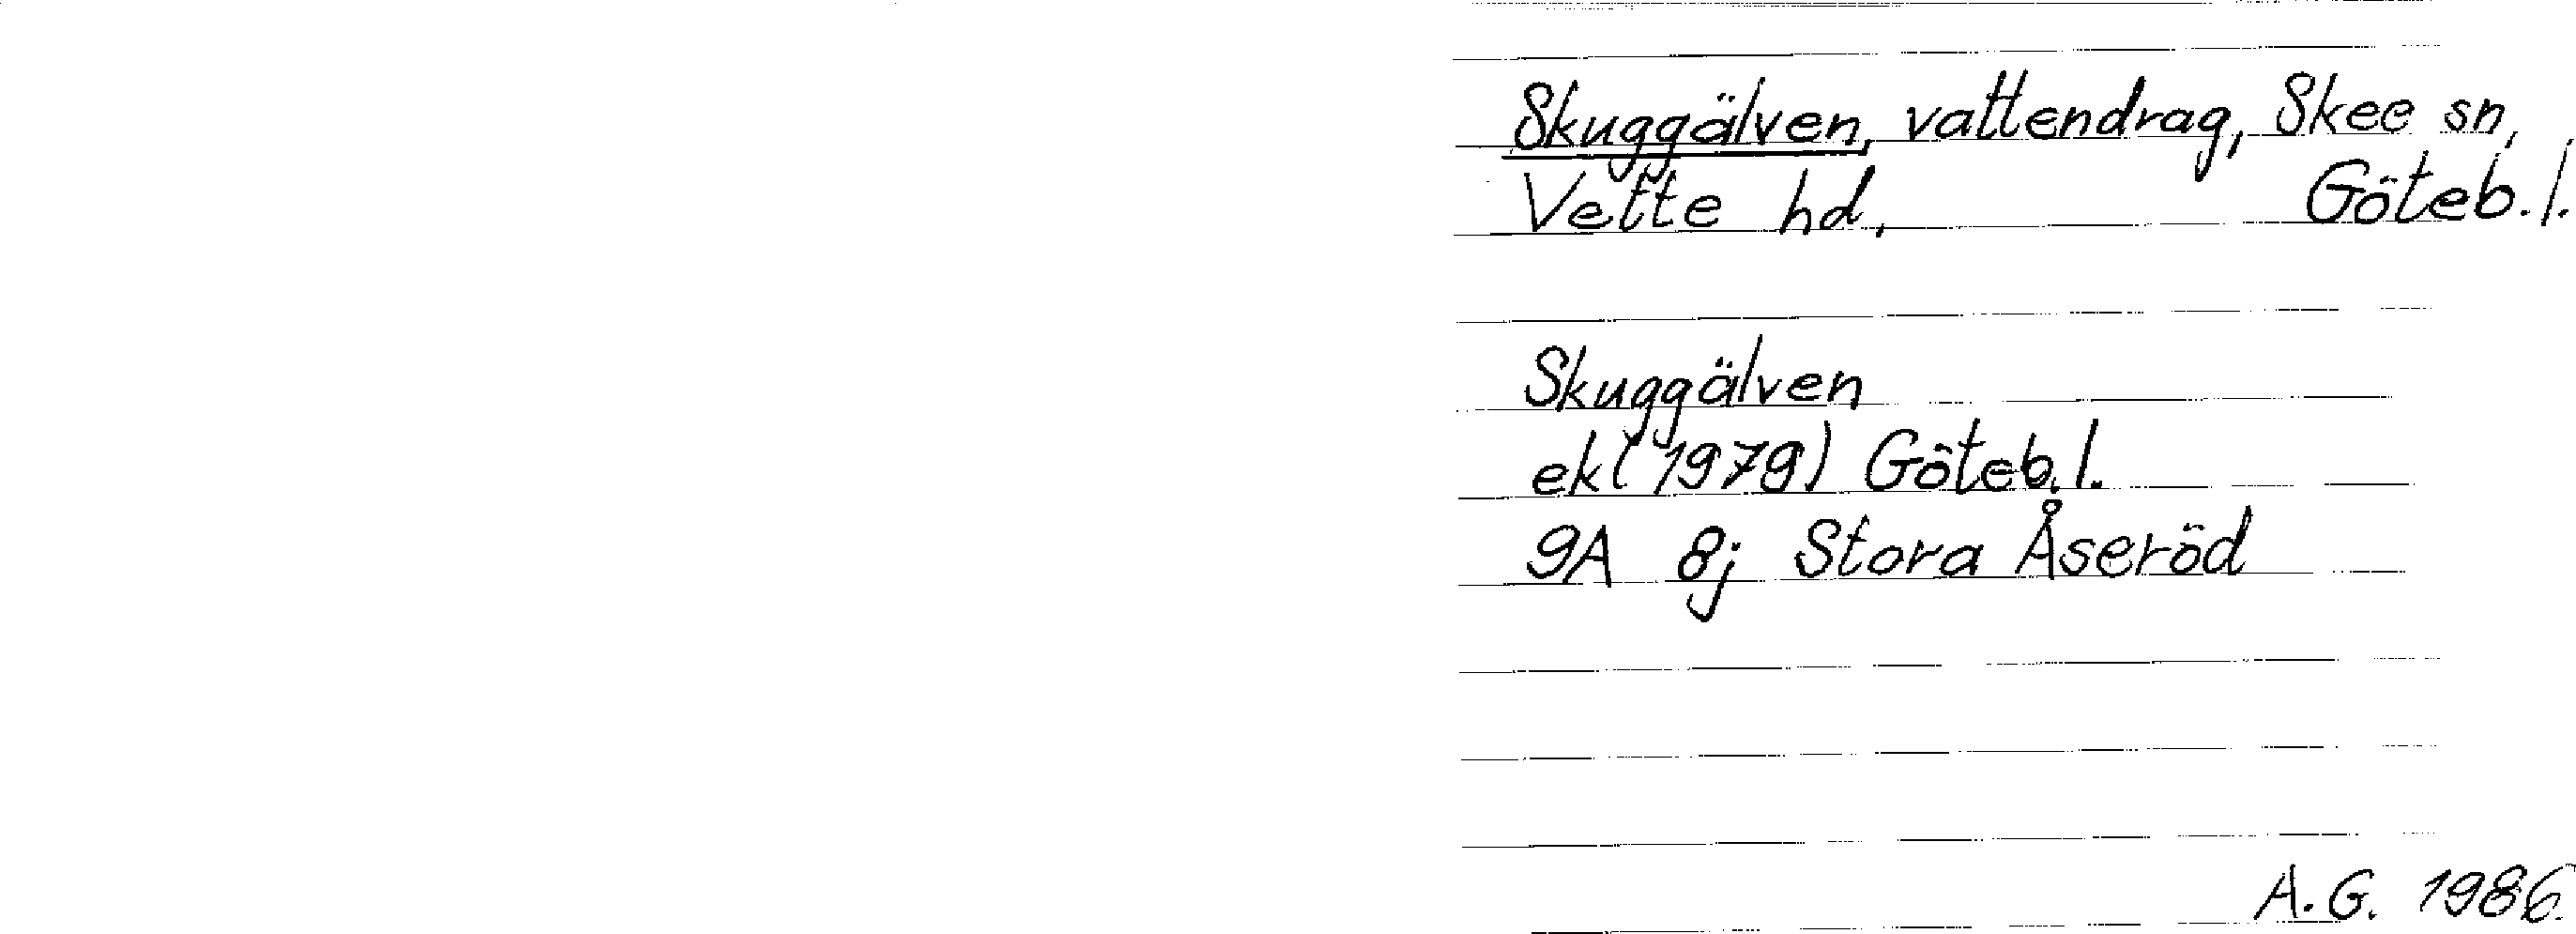 Skuggälven, vattendrag, Skee sn,
Vette hd, Göteb. l.
Skuggälven
ek (1979) Göteb. l.
9A 8j Stora Åseröd
A.G. 1986